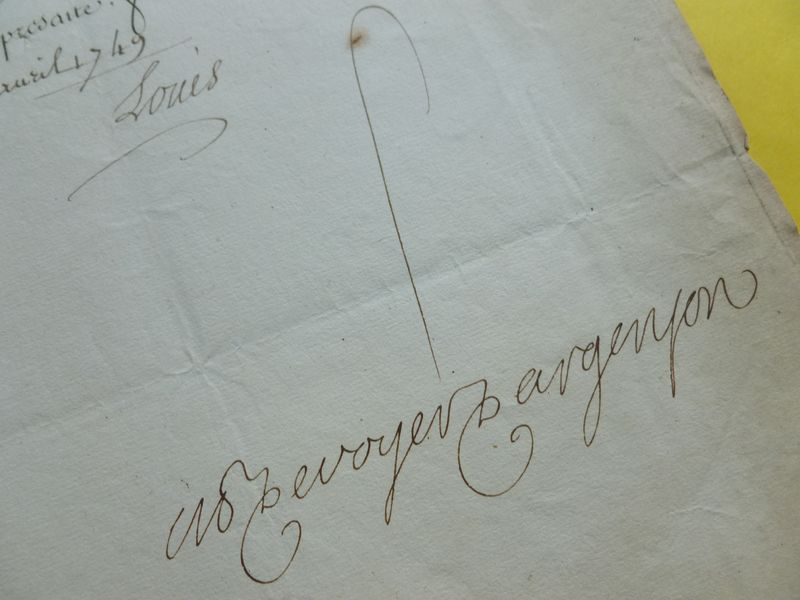 presante.
avril 1749
Louis
M P de voyer d argenson